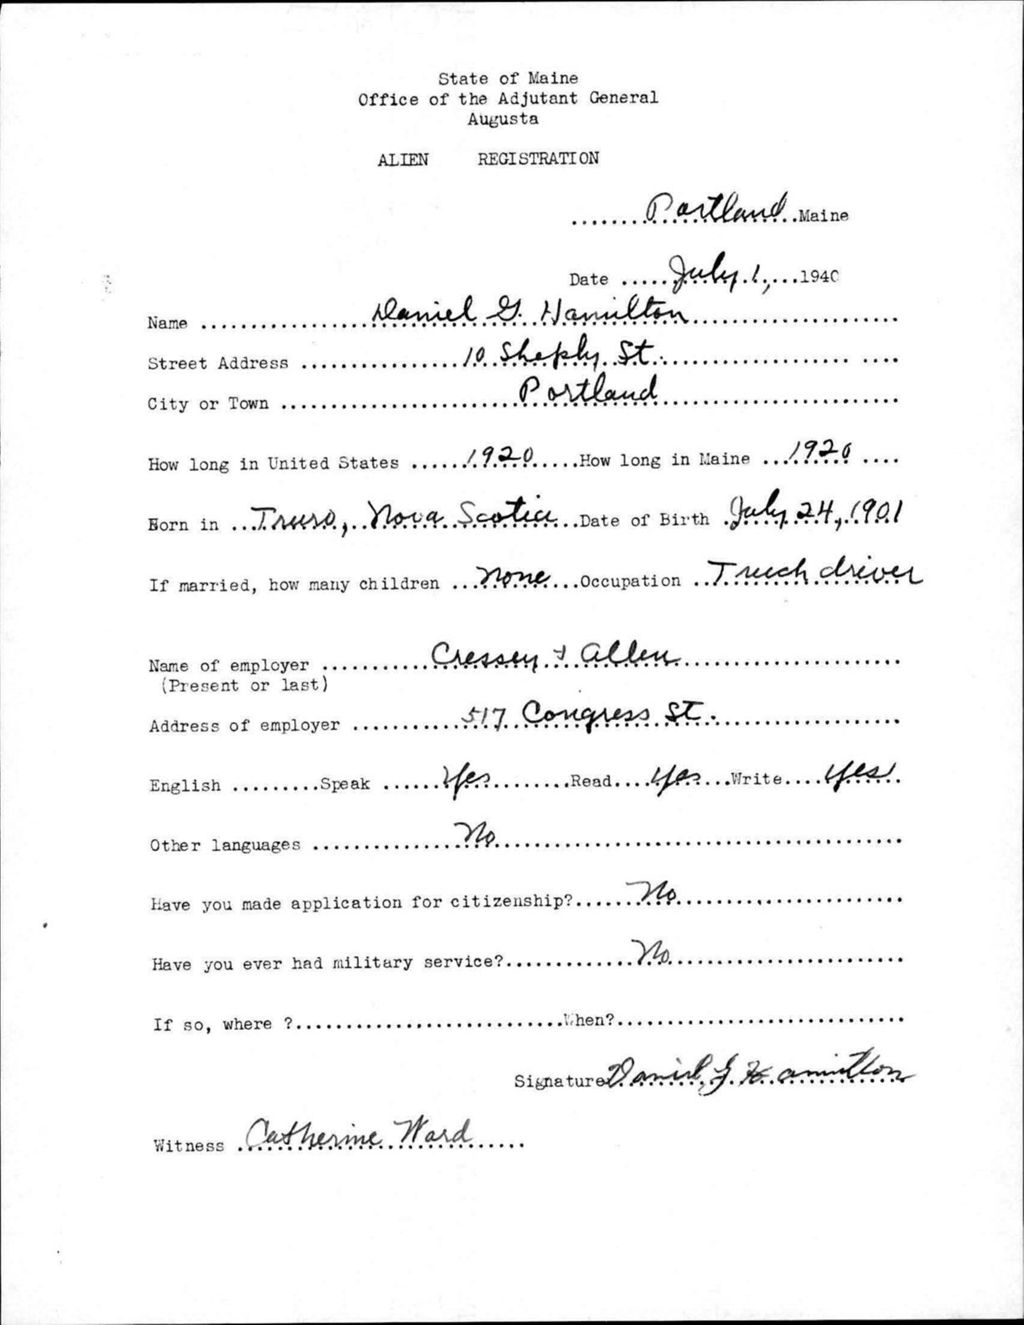 State of Maine
Office of the Adjutant General
Augusta
ALIEN REGISTRATION
........Portland..Maine
Date .....July.1,...1940
Name ..................Daniel G. Hamilton......................
Street Address .................10 Sheply St................... ....
City or Town .........................Portland.........................
How long in United States ......1920.....How long in Maine ...1920 ....
Born in ..Truro, Nova Scotia...Date of Birth .July 24, 1901
If married, how many children ...None...Occupation ..Truck driver
Name of employer ...........Cressey & Allen.......................
(Present or last)
Address of employer ...........517 Congress St....................
English .........Speak ......Yes.........Read....Yes...Write....Yes.
Other languages ...............No..........................................
Have you made application for citizenship?.......No........................
Have you ever had military service?.............No.........................
If so, where ?...........................When?.............................
Signature Daniel G. Hamilton
Witness .Catherine Ward.....